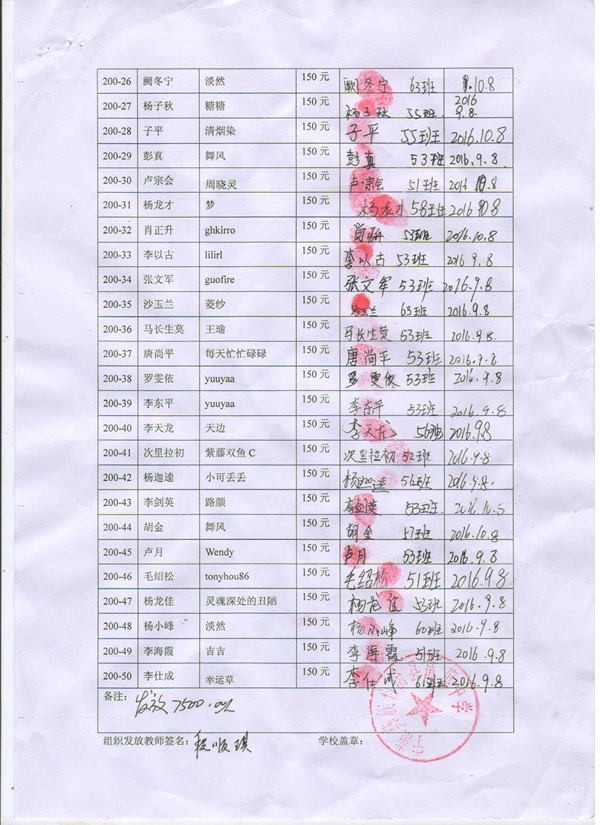 200-26 阙冬宁 淡然 150 元 阙冬宁 63班 10.8
200-27 杨子秋 糖糖 150 元 杨子秋 55班 2016 9.8.
200-28 子平 清烟染 150 元 子平 55班 2016.10.8
200-29 彭真 舞风 150 元 彭真 53班 2016.9.8.
200-30 卢宗会 周晓灵 150 元 卢宗会 51班 2016 10.8
200-31 杨龙才 梦 150 元 杨龙才 58班 2016 10 8
200-32 肖正升 ghkirro 150 元 53班 2016.10.8
200-33 李以古 lilirl 150 元 李以古 53班 2016 9.8
200-34 张文军 guofire 150 元 张文军 53班 2016.9.8
200-35 沙玉兰 菱纱 150 元 沙玉兰 63班 2016.9.8
200-36 马长生莫 王瑜 150 元 马长生莫 53班 2016.9.8.
200-37 唐尚平 每天忙忙碌碌 150 元 唐尚平 53班 2016.9.8
200-38 罗雯依 yuuyaa 150 元 罗雯依 53班 2016.9.8
200-39 李东平 yuuyaa 150 元 李东平 53班 2016.9.8
200-40 李天龙 天边 150 元 李天龙 56班 2016.9.8
200-41 次里拉初 紫藤双鱼 C 150 元 次里拉初 52班 2016.9.8
200-42 杨迦逵 小可丢丢 150 元 杨迦逵 56班 2016.9.8.
200-43 李剑英 路颜 150 元 李剑英 53班 2016.10.8
200-44 胡金 舞风 150 元 胡金 57班 2016.10.8
200-45 卢月 Wendy 150 元 卢月 53班 2016.9.8
200-46 毛绍松 tonyhou86 150 元 毛绍松 51班 2016.9.8
200-47 杨龙佳 灵魂深处的丑陋 150 元 杨龙佳 53班 2016.9.8
200-48 杨小峰 淡然 150 元 杨小峰 60班 2016.9.8
200-49 李海霞 吉吉 150 元 李海霞 51班 2016.9.8
200-50 李仕成 幸运草 150 元 李仕成 61班 2016.9.8
备注： 发放7500.00元
组织发放教师签名： 程顺琪 学校盖章：